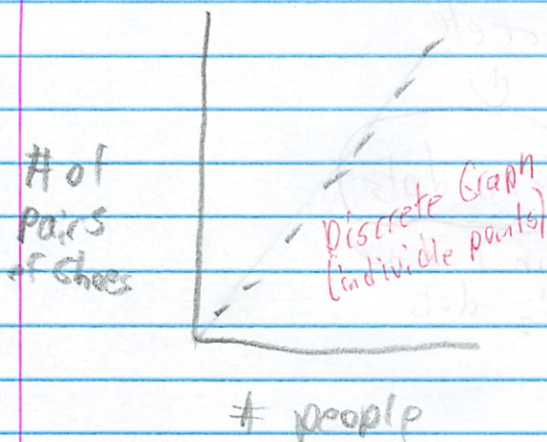 # of
pairs
of shoes
Discrete Graph
(individle points)
# people